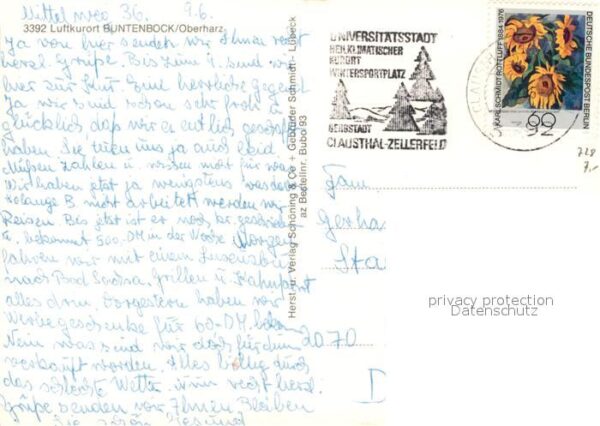 Mittelweg 36. 9.6.
3392 Luftkurort BUNTENBOCK/Oberharz
Ja von hier senden wir Ihnen recht
herzl. Grüße. Bis zum sind wir
hier zur Kur. Eine herrliche Gegend
Ja wir sind schon sehr froh u.
glücklich daß wir es entlich geschafft
haben. Sie tuen uns ja auch leid
müßen zahlen u. wissen nicht für was
Wir haben jetzt ja wenigstens
solange B nicht arbeitett werden wir
Reisen. Bis jetzt ist er noch kr. geschrieben
u. bekommt 500.-DM in der Woche Morgen
fahren wir mit einem Luxusbus
nach Bad Sachsa. Grillen u. Kahnfahrt
alles drin. Vorgestern haben wir
Werbegeschenke für 60-DM. bekom
Nein was sind wir doch für dum
verkauft worden. Alles billig durch
das schlechte Wetter. recht herzl.
Grüße senden wir, Ihnen Bleiben
Sie schön Gesund
Herst. u. Verlag Schöning & Co + Gebrüder Schmidt - Lübeck
az Bestellnr. Bubo 93
UNIVERSITÄTSSTADT
HEILKLIMATISCHER
KURORT
WINTERSPORTPLATZ
BERGSTADT
CLAUSTHAL-ZELLERFELD
KARL SCHMIDT-ROTTLUFF 1884-1976
DEUTSCHE BUNDESPOST BERLIN
60
728
7,-
Fam.
Gerha
Sta
2070
D
privacy protection
Datenschutz